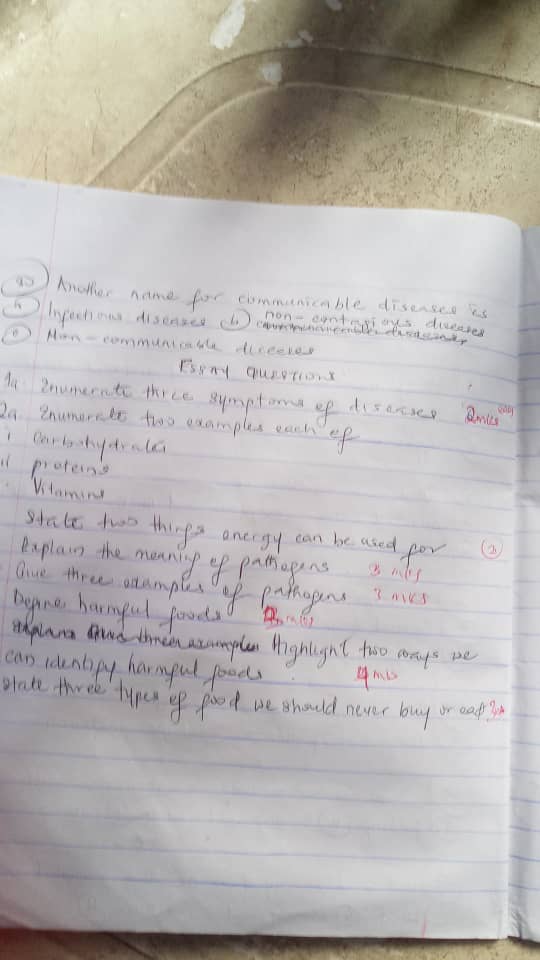 20 Another name for communicable diseases is
a Infectious diseases b non-contagious diseases
c Non-communicable diseases
Essay questions
1a. Enumerate three symptoms of diseases 2mks each
2a. Enumerate two examples each of
i Carbohydrates
ii proteins
Vitamins
State two things energy can be used for (2)
Explain the meaning of pathogens 3 mks
Give three examples of pathogens 3 mks
Define harmful foods mks
Highlight two ways we
can identify harmful foods 4 mks
state three types of food we should never buy or eat